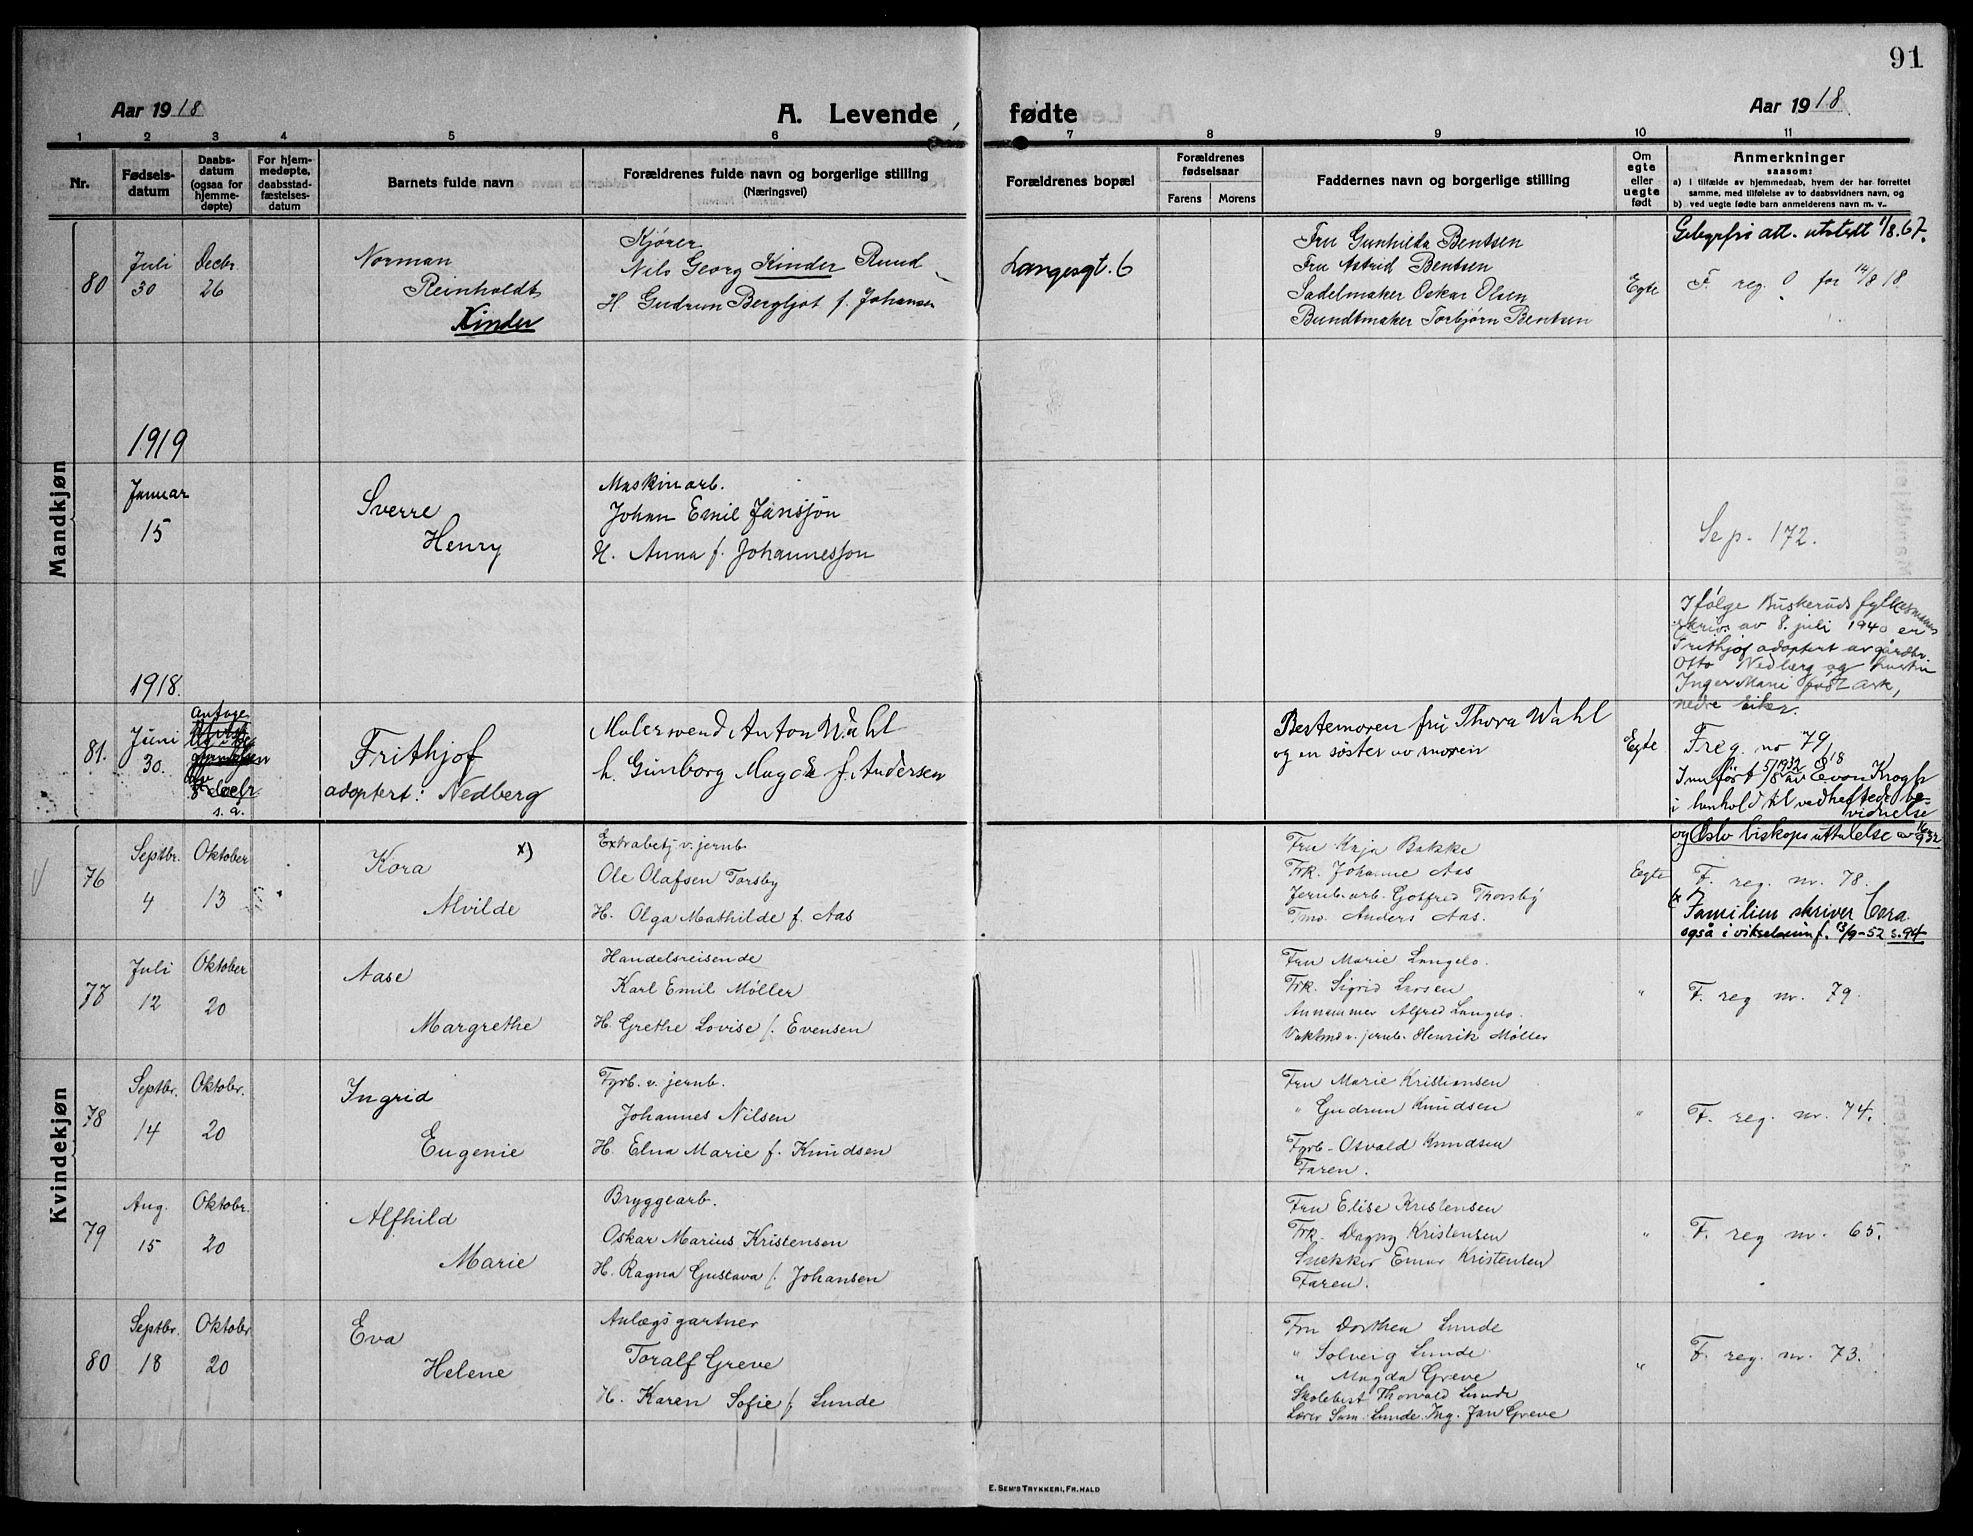 91
Aar 1918
A. Levende
fødte
Aar 1918
1 2 3 4 5 6 7 8 9 10 11
Nr.
Fødsels-
datum
Daabs-
datum
(ogsaa for
hjemme-
døpte)
For hjem-
medøpte,
daabsstad-
fæstelses-
datum
Barnets fulde navn
Forældrenes fulde navn og borgerlige stilling
(Næringsvei)
Forældrenes bopæl
Forældrenes
fødselsaar
Farens
Morens
Faddernes navn og borgerlige stilling
Om
egte
eller
uegte
født
Anmerkninger
saasom:
a) I tilfælde av hjemmedaab, hvem der har forrettet
samme, med tilføielse av to daabsvidners navn, og
b) ved uegte fødte barn anmelderens navn m. v..
Mandkjøn
80
Juli
30
Decbr.
26
Norman
Reinholdt
Kinder
Kjører
Nils Georg Kinder Ruud
H. Gudrun Bergljot f. Johansen
Langesgt. 6
Fru Gunhilda Bentsen
Fru Astrid Bentsen
Sadelmaker Oskar Olsen
Bundtmaker Torbjørn Bentsen
Egte
Gebyrfri att. utstedt 1/8.67.
F. reg. 0 for 14/8 18.
1919
Januar
15
Sverre
Henry
Maskinarb.
Johan Emil Jansson
H. Anna f. Johannesson
Sep. 172.
1918.
81.
Juni
30.
s. a.
Frithjof
adoptert: Nedberg
Malersvend Anton Wahl
h. Gunborg Magda f. Andersen
Bestemoren fru Thora Wahl
og en søster av moren
Egte
Ifølge Buskeruds fylkesmanns
skriv. av 8. juli 1940 er
Frithjof adoptert av gårdbr.
Otto Nedberg og hustru
Inger Marie født Ark,
nedre Eiker.
F reg. no 79/18
Innført 5/8 1932 av Evon Krogh
i henhold til vedheftede be-
vidnelse
og Oslo biskops uttalelse av
Kvindekjøn
76
Septbr.
4
Oktober
13
Kora x)
Alvilde
Extrabetj v. jernb.
Ole Olafsen Torsby
H. Olga Mathilde f. Aas
Fru Kaja Bakke
Frk. Johanne Aas
Jernb.arb. Gotfred Thorsby
Tm. Anders Aas.
Egte
F. reg. nr. 78.
x Familien skriver Cora
også i vikselsninf. 13/9-52 s. 94
77
Juli
12
Oktober
20
Aase
Margrethe
Handelsreisende
Karl Emil Møller
H. Grethe Lovise f. Evensen
Fru Marie Langelo.
Frk. Sigrid Larsen
Annammer Alfred Langelo.
Vaktmd v. jernb. Henrik Møller
"
F. reg nr. 79.
78
Septbr.
14
Oktobr.
20
Ingrid
Eugenie
Fyrb. v. jernb.
Johannes Nilsen
H. Elna Marie f. Knudsen
Fru Marie Kristiansen
" Gudrun Knudsen
Fyrb. Osvald Knudsen
Faren.
"
F. reg. nr. 74.
79
Aug.
15
Oktobr.
20
Alfhild
Marie
Bryggearb.
Oskar Marius Kristensen
H. Ragna Gustava f. Johansen
Fru Elise Kristensen
Frk. Dagny Kristensen
Snekker Einar Kristensen
Faren.
"
F. reg nr. 65.
80
Septbr.
18
Oktobr
20
Eva
Helene
Anlægsgartner
Toralf Greve
H. Karen Sofie f. Lunde
Fru Dorthea Lunde
" Solveig Lunde
" Magda Greve
Skolebest Thorvald Lunde
Lærer Sam. Lunde. Ing. Jan Greve
"
F. reg. nr. 73.
E. SEM'S TRYKKERI, FR.HALD